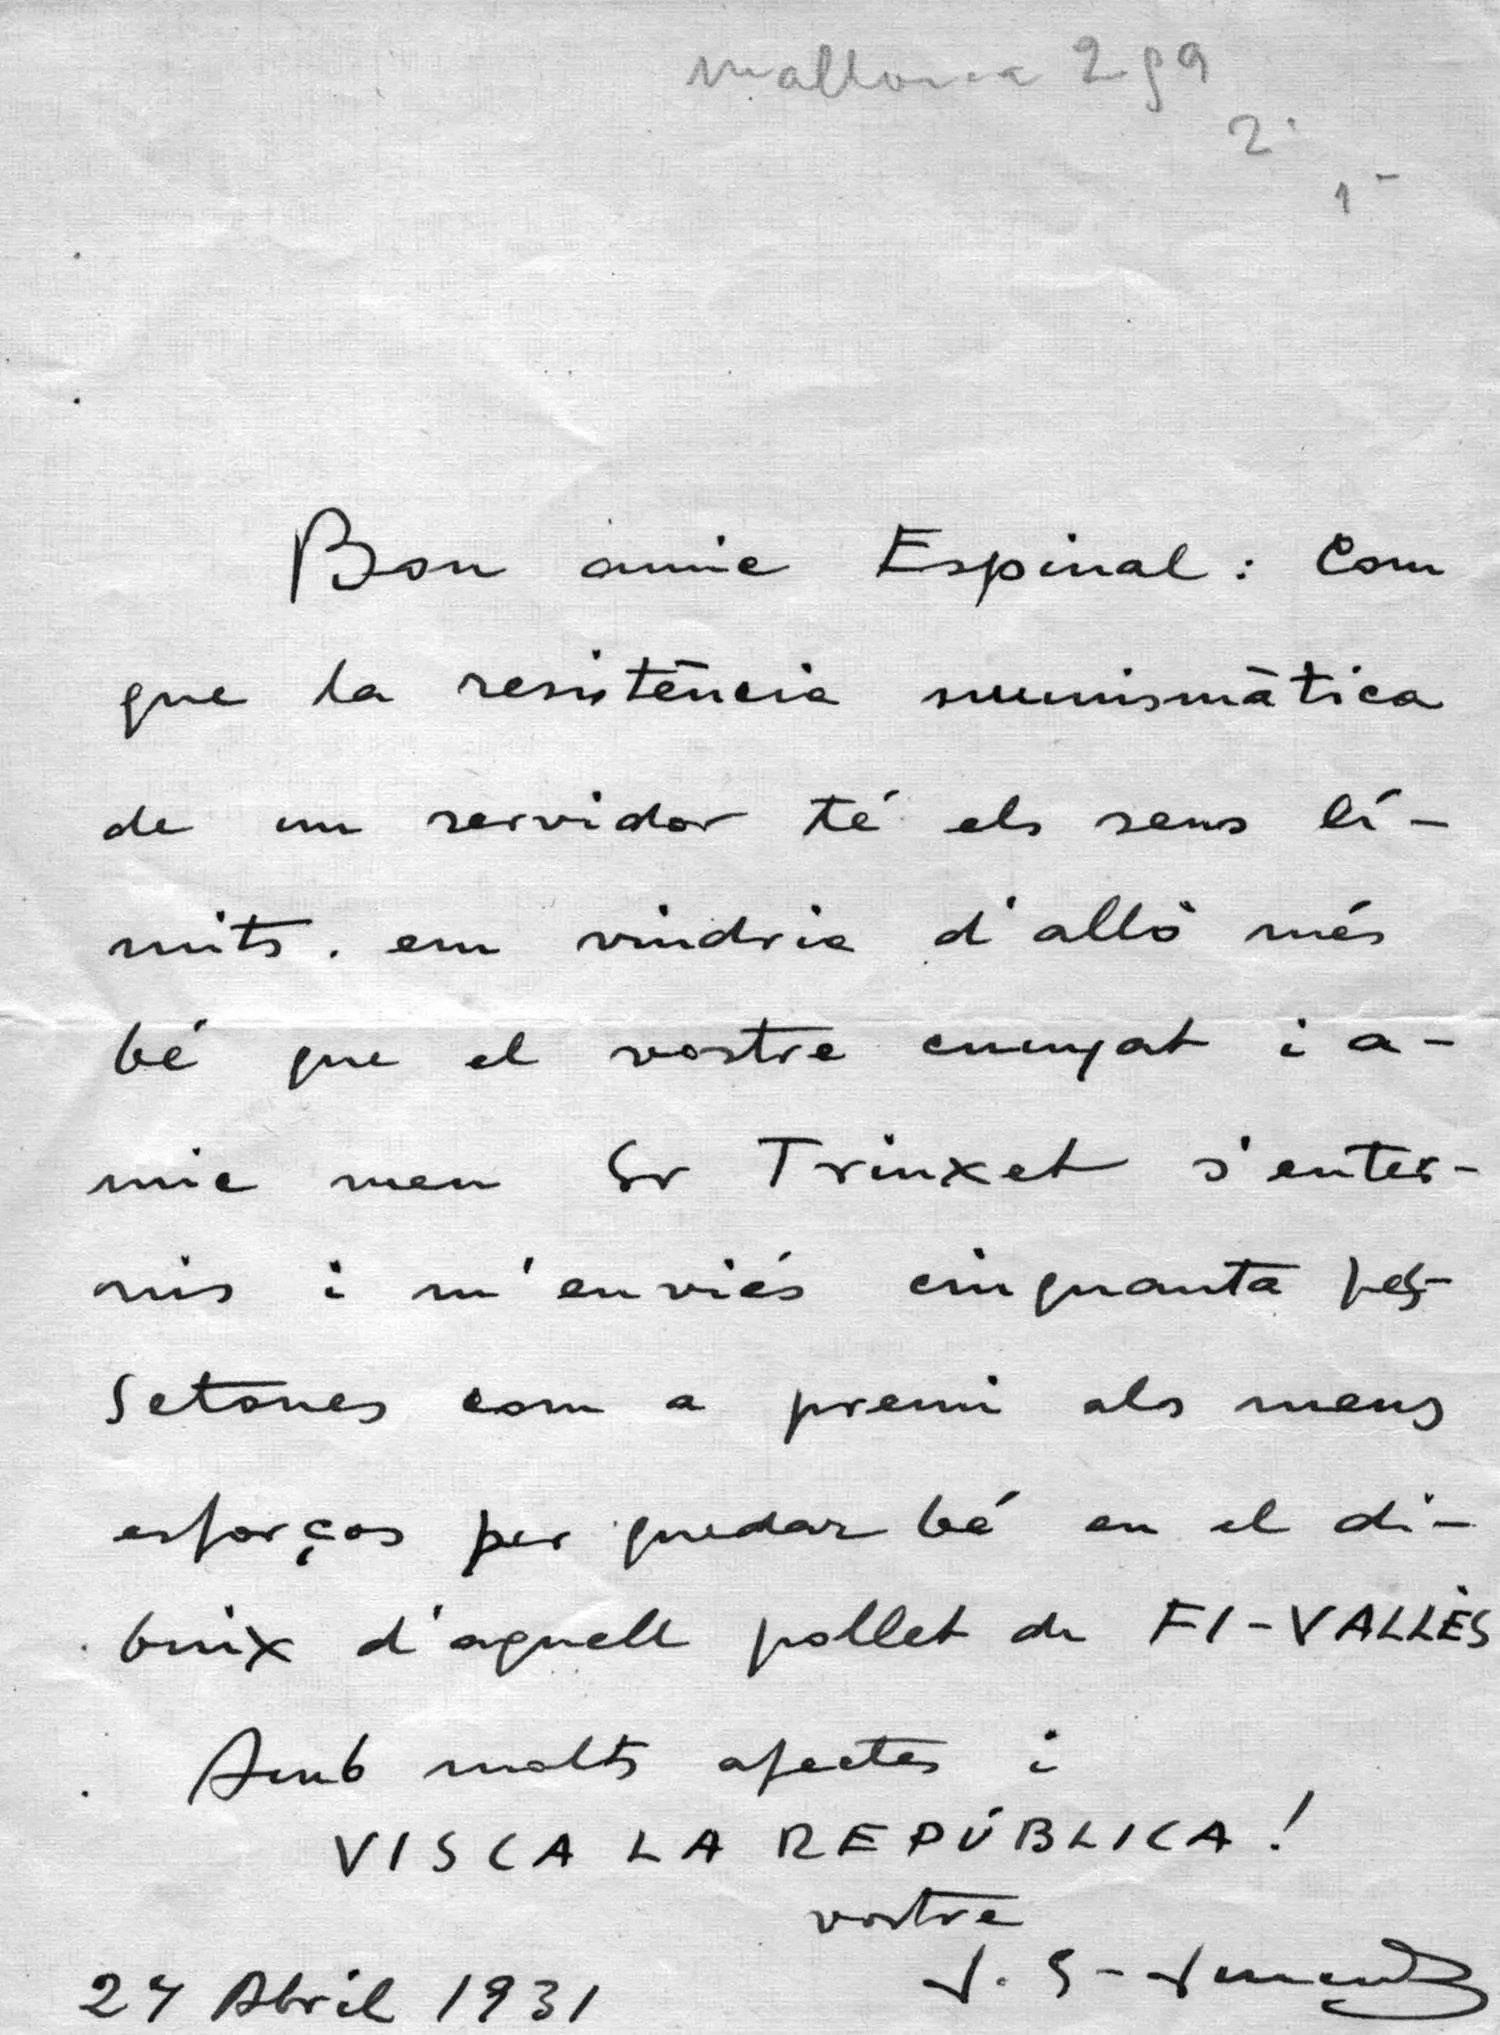 mallorca 299
2º
1-
Bon amic Espinal: Com
que la resistència numismàtica
de un servidor té els seus lí-
mits. em vindria d'allò més
bé que el vostre cunyat i a-
mic meu Sr Trinxet s'enter-
nis i m'enviés cinquanta pes-
setones com a premi als meus
esforços per quedar bé en el di-
buix d'aquell pollet de FI-VALLÈS
Amb molts afectes i
VISCA LA REPÚBLICA!
vostre
J. G-Junceda
24 Abril 1931